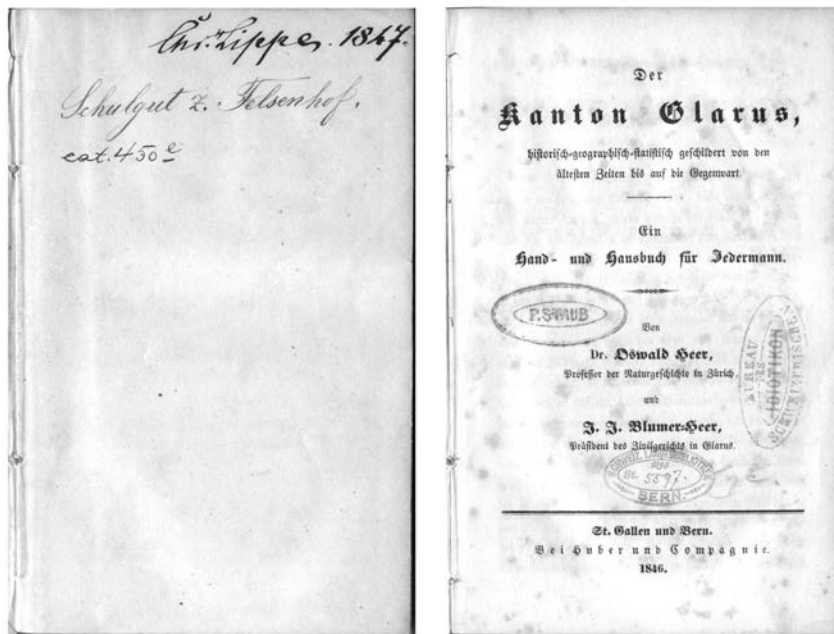 Chr. Lippe. 1847.
Schulgut z. Felsenhof.
cat. 450 e
Der
Kanton Glarus,
historisch-geographisch-statistisch geschildert von den
ältesten Zeiten bis auf die Gegenwart.
Ein
Hand- und Hausbuch für Jedermann.
P. STAUB
Von
Dr. Oswald Heer,
Professor der Naturgeschichte in Zürich,
und
J. J. Blumer-Heer,
Präsident des Zivilgerichts in Glarus.
BUREAU
DES
SCHWEIZERISCHEN
IDIOTIKON
SCHWEIZ. LANDESBIBLIOTHEK
5597.
BERN.
St. Gallen und Bern.
Bei Huber und Compagnie.
1846.